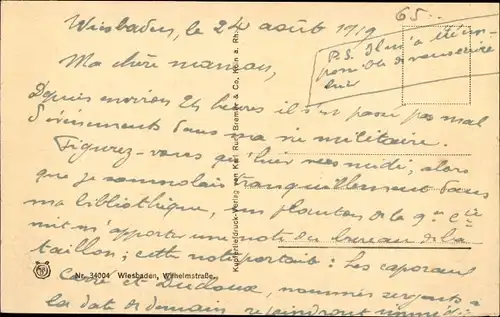 65..
Wiesbaden, le 24 août 1919
P.S. Il m'a été im-
possible de vous écrire
hier
Ma chère maman,
Depuis environ 24 heures il s'est passé pas mal
d'évènements dans ma vie militaire.
Figurez-vous qu'hier vers midi, alors
que je somnolais tranquillement dans
ma bibliothèque, un planton de la 9e Cie
m'apporte une note du bureau de la
taillon; cette note portait: Les caporaux
et Ludoux, nommés sergents à
la date de demain, rejoindront
Kupfertiefdruck-Verlag von Karl Rud. Bremer & Co, Köln a. Rh.
Nr. 34004 Wiesbaden, Wilhelmstraße